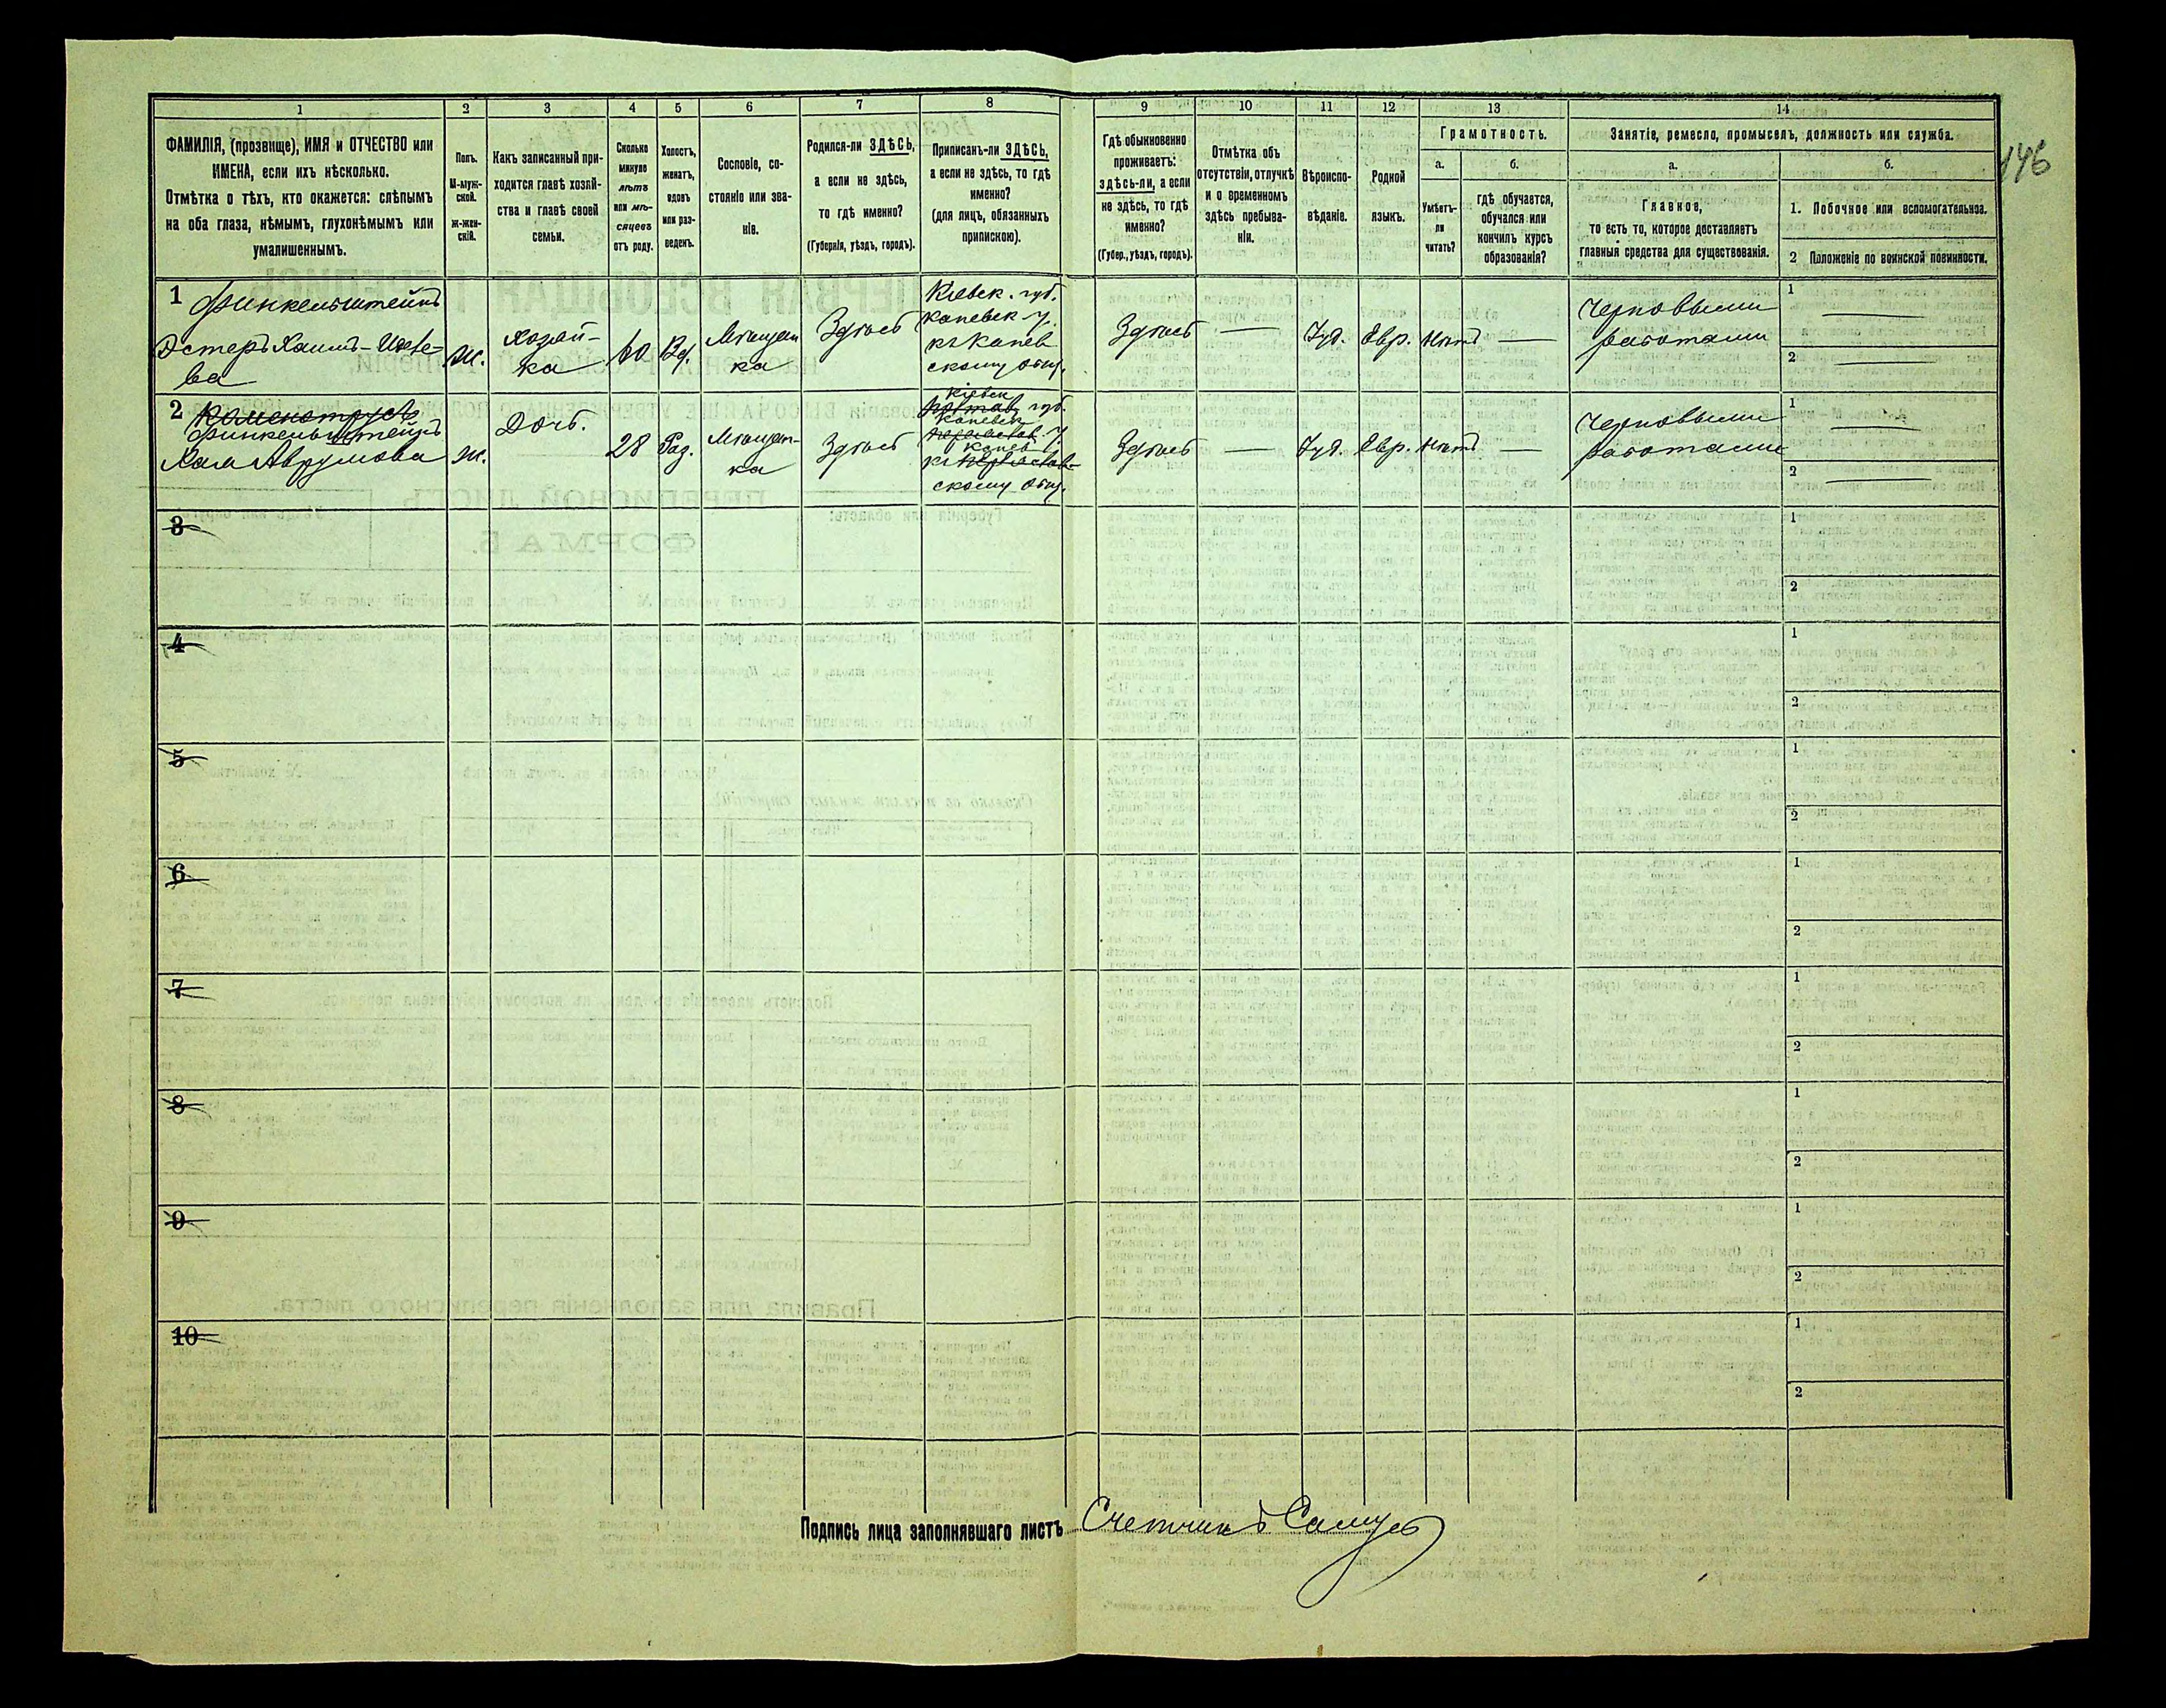 1
2
3
4
5
6
7
8
9
10
11
12
13
14
146
ФАМИЛІЯ, (прозвище), ИМЯ и ОТЧЕСТВО или
ИМЕНА, если ихъ нѣсколько.
Отмѣтка о тѣхъ, кто окажется: слѣпымъ
на оба глаза, нѣмымъ, глухонѣмымъ или
умалишеннымъ.
Полъ.
М-муж-
ской.
ж-жен-
скій.
Какъ записанный при-
ходится главѣ хозяй-
ства и главѣ своей
семьи.
Сколько
минуло
лѣтъ
или мѣ-
сяцевъ
отъ роду.
Холостъ,
женатъ,
вдовъ
или раз-
веденъ.
Сословіе, со-
стояніе или зва-
ніе.
Родился-ли ЗДѢСЬ,
а если не здѣсь,
то гдѣ именно?
(Губернія, уѣздъ, городъ).
Приписанъ-ли ЗДѢСЬ,
а если не здѣсь, то гдѣ
именно?
(для лицъ, обязанныхъ
припискою).
Гдѣ обыкновенно
проживаетъ:
здѣсь-ли, а если
не здѣсь, то гдѣ
именно?
(Губер., уѣздъ, городъ).
Отмѣтка объ
отсутствіи, отлучкѣ
и о временномъ
здѣсь пребыва-
ніи.
Вѣроиспо-
вѣданіе.
Родной
языкъ.
Грамотность.
а.
Умѣетъ-
ли
читать?
б.
гдѣ обучается,
обучался или
кончилъ курсъ
образованія?
Занятіе, ремесло, промыселъ, должность или служба.
а.
Главное,
то есть то, которое доставляетъ
главныя средства для существованія.
б.
1. Побочное или вспомогательное.
2 Положеніе по воинской повинности.
1 Финкельштейнъ
Эстеръ Хаимъ-Иосе-
ва
Ж.
Хозяй-
ка
60
Вд.
Мѣщан
ка
Здѣсь
Кіевск. губ.
Каневск у.
къ Канев
скому общ.
Здѣсь
Іуд.
Евр.
Нѣтъ
Черновыми
работами
1
2
2
Финкельштейнъ
Хая Аврумова
Ж.
Дочь.
28
Раз.
Мѣщан-
ка
Здѣсь
Кіевск
губ.
Каневск
у.
Канев
къ
скому общ.
Здѣсь
Іуд.
Евр.
Нѣтъ
Черновыми
работами
1
2
3
1
2
4
1
2
5
1
2
6
1
2
7
1
2
8
1
2
9
1
2
10
1
2
Подпись лица заполнявшаго листъ Счетчикъ